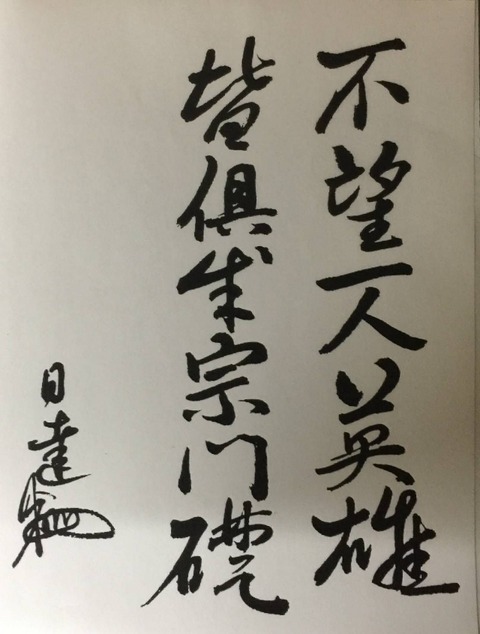 不望一人英雄
皆俱成宗門礎
日達